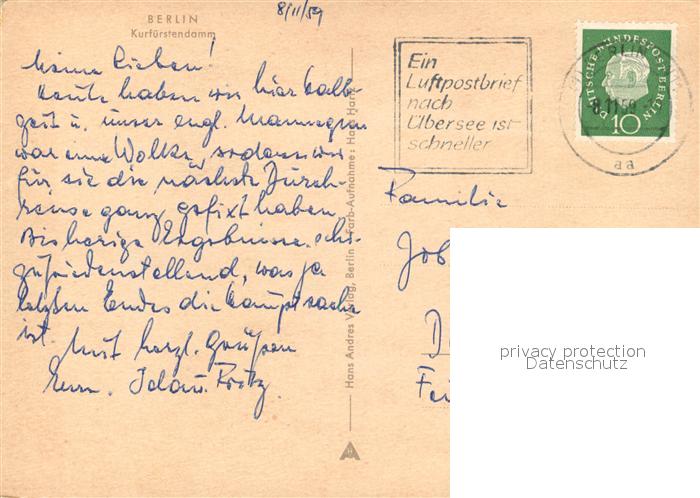 8/11/59
BERLIN
Kurfürstendamm
Meine Lieben!
Heute haben wir hier Halb-
zeit u. unser engl. Mannequin
war eine Wolke, sodass wir
für sie die nächste Durch-
reise ganz gefixt haben.
Bisherige Ergebnisse
zufriedenstellend, was ja
letzten Endes die Hauptsache
ist.
Mit herzl. Grüßen
Eure Fritz
Hans Andres Verlag, Berlin Farb-Aufnahme: Hans Hartz
Ein
Luftpostbrief
nach
Übersee ist
schneller
DEUTSCHE BUNDESPOST BERLIN
10
BERLIN
8.11.59
aa
Familie
Job
privacy protection
Datenschutz